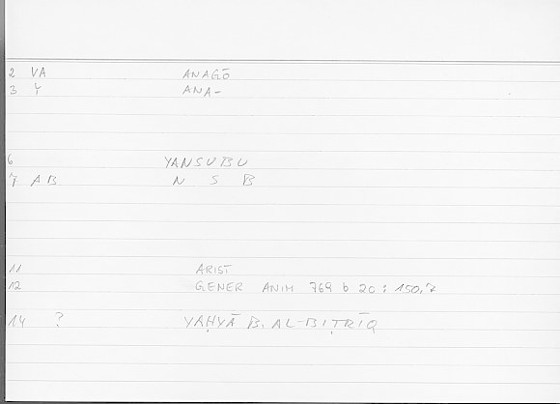 2 VA ANAGŌ
3 Y ANA-
6 YANSUBU
7 AB N S B
11 ARIST
12 GENER ANIM 769 b 20 : 150,7
14 ? YAḤYĀ B. AL-BIṬRĪQ